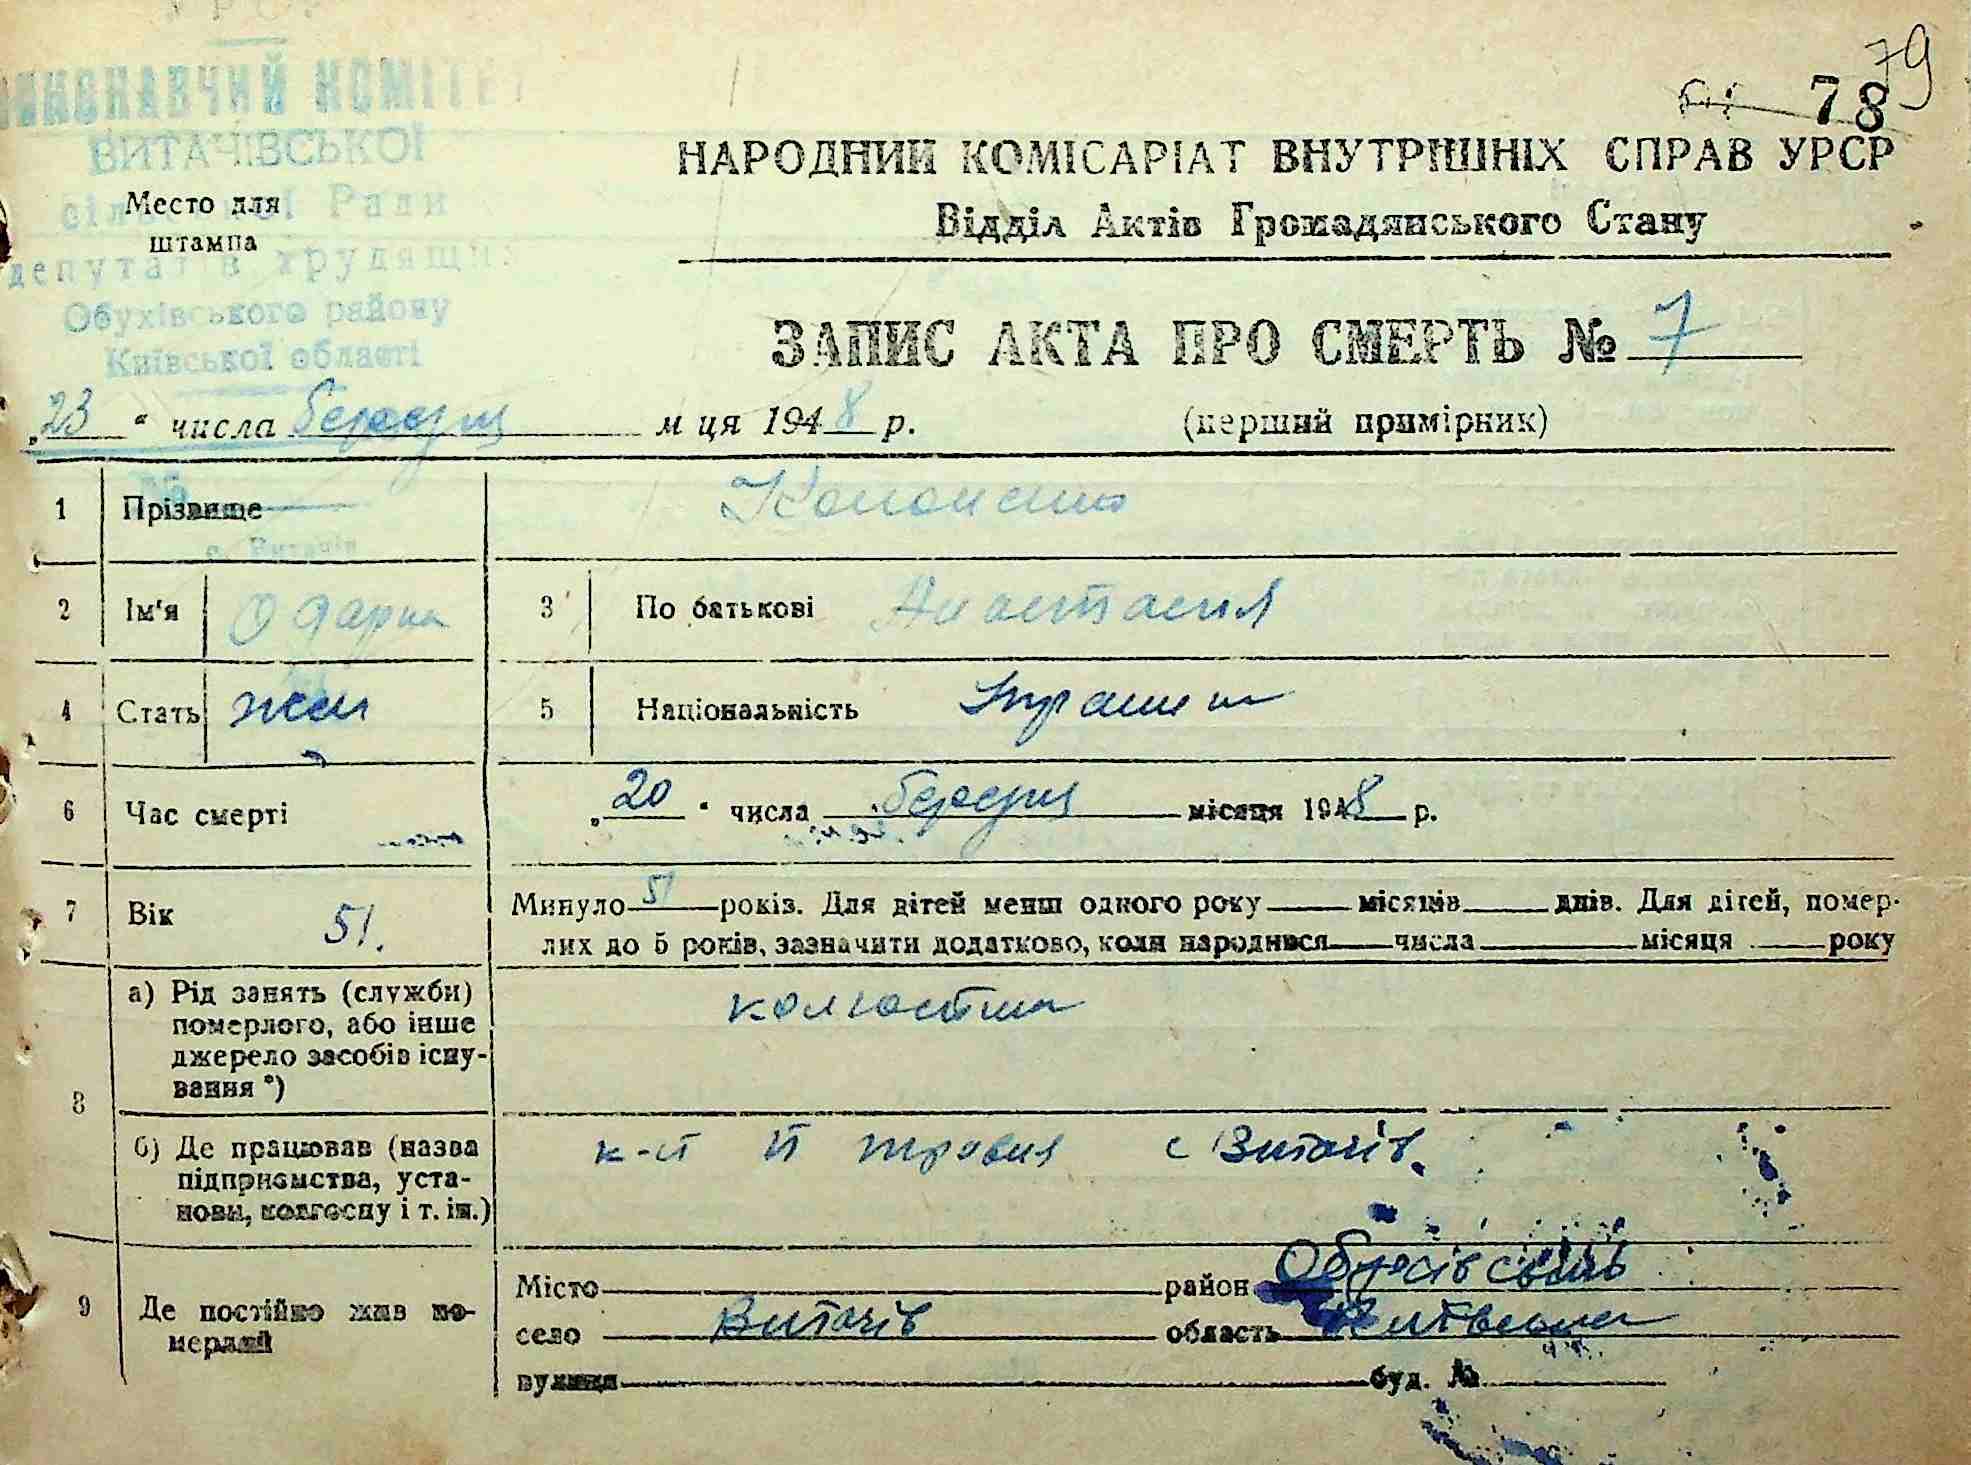 ВИКОНАВЧИЙ КОМІТЕТ
ВИТАЧІВСЬКОЇ
сільської Ради
депутатів трудящих
Обухівського району
Київської області
№
с. Витачів
Место для
штампа
79
78
НАРОДНИЙ КОМІСАРІАТ ВНУТРІШНІХ СПРАВ УРСР
Відділ Актів Громадянського Стану
ЗАПИС АКТА ПРО СМЕРТЬ № 7
„23 “ числа березня м ця 1948 р. (перший примірник)
1 Прізвище
2 Ім'я Одарка 3 По батькові Анастасія
4 Стать жен 5 Національність
6 Час смерті „20 “ числа березня місяця 1948 р.
7 Вік 51. Минуло 51 років. Для дітей менш одного року місяців днів. Для дітей, помер-
лих до 5 років, зазначити додатково, коли народився числа місяця року
8 а) Рід занять (служби)
померлого, або інше
джерело засобів існу-
вання *)
б) Де працював (назва
підприємства, уста-
нови, колгоспу і т. ін.)
к-п травня с Витачів.
9 Де постійно жив по-
мерлий
Місто район Обухівський
село Витачів область Київська
вулиця буд. №